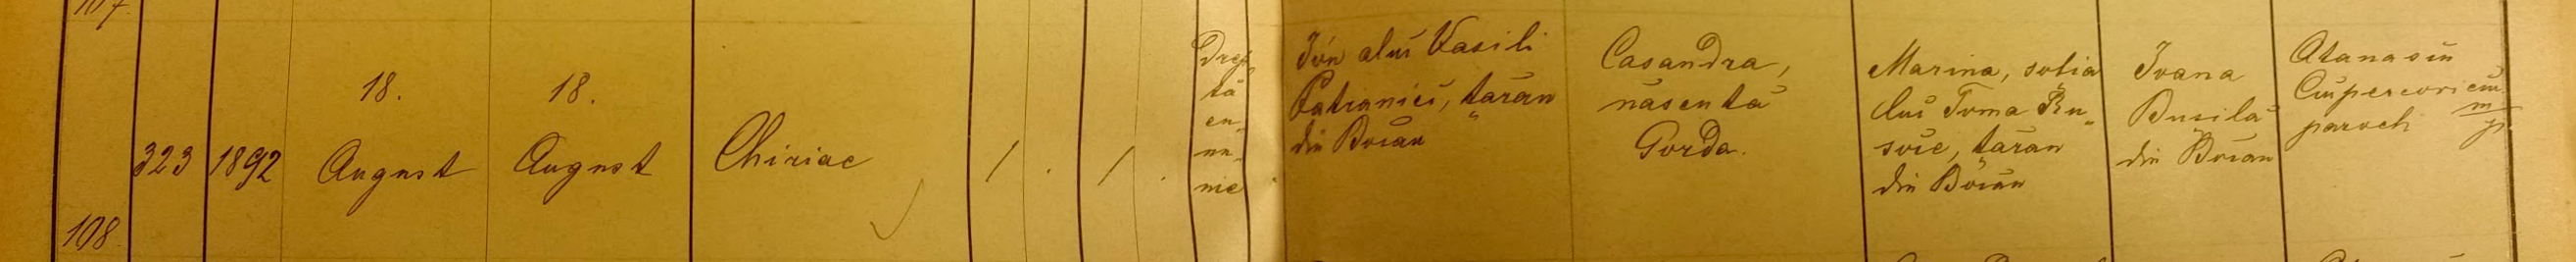 107.
323 1892
18.
August
18.
August
Chiriac
1 . 1 .
Drep„
tă
cu„
nu„
nie
Ión alui Vasili
Patranici, țăran
din Boian
Casandra,
născută
Gorda.
Marina, soția
lui Toma Ru„
soie, țăran
din Boian
Ioana
Busilă
din Boian
Atanasiu
paroch
108.